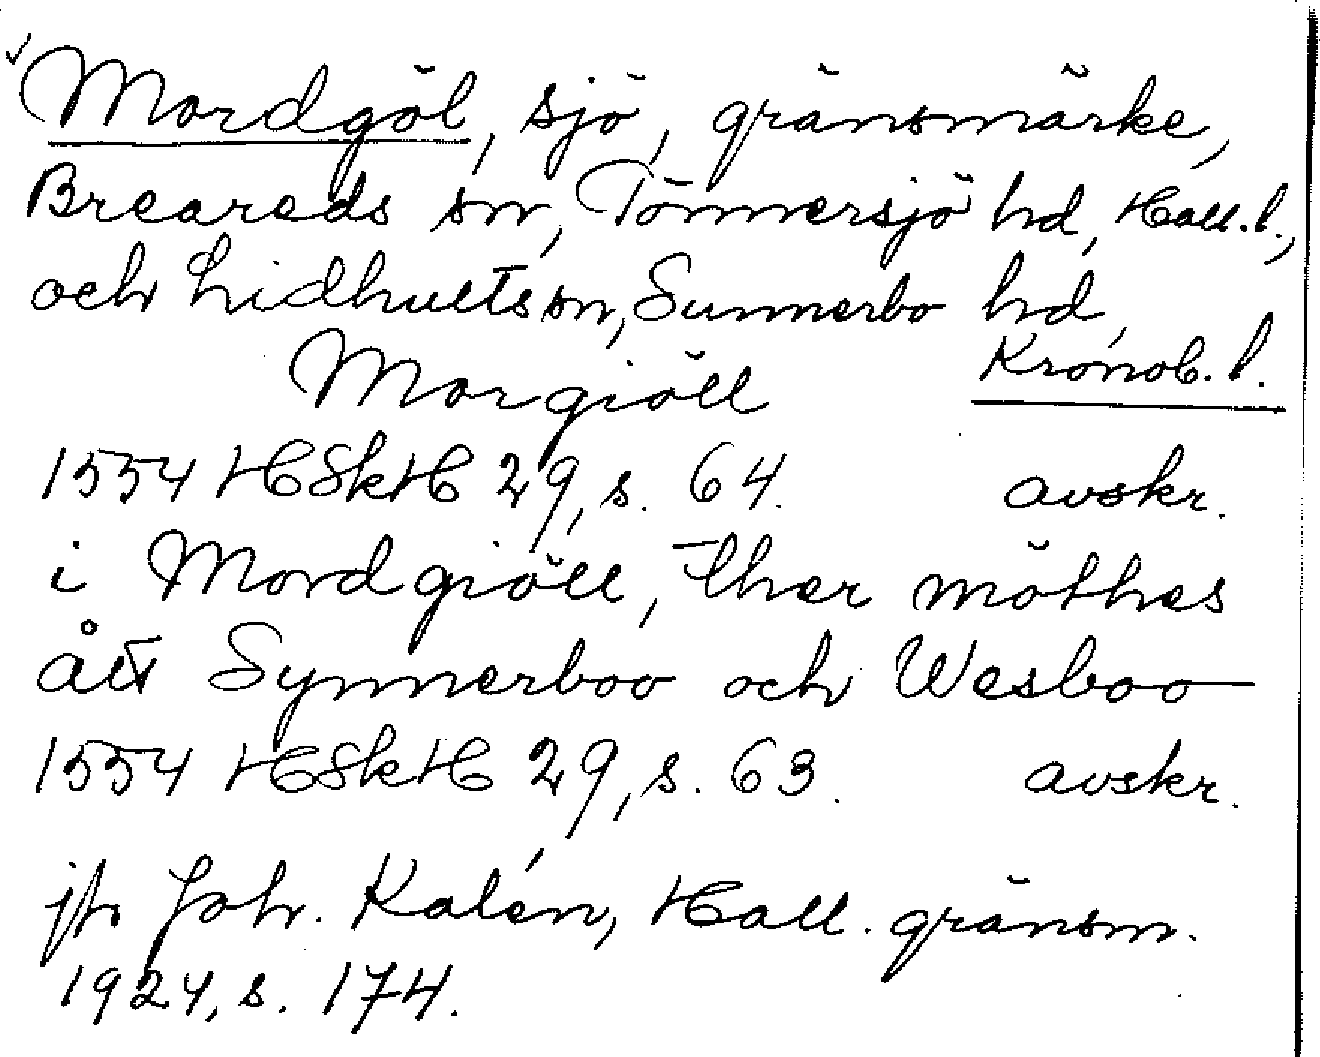 Mordgöl, sjö, gränsmärke,
Breareds sn, Tönnersjö hd, Hall.l.,
och Lidhults sn, Sunnerbo hd,
Kronob. l.
Morgiöll
1554 HSkH 29, s. 64. avskr.
i Mordgiöll, ther möthes
ått Synnerboo och Wesboo
1554 HSkH 29, s. 63. avskr.
jfr Joh. Kalén, Hall. gränsm.
1924, s. 174.